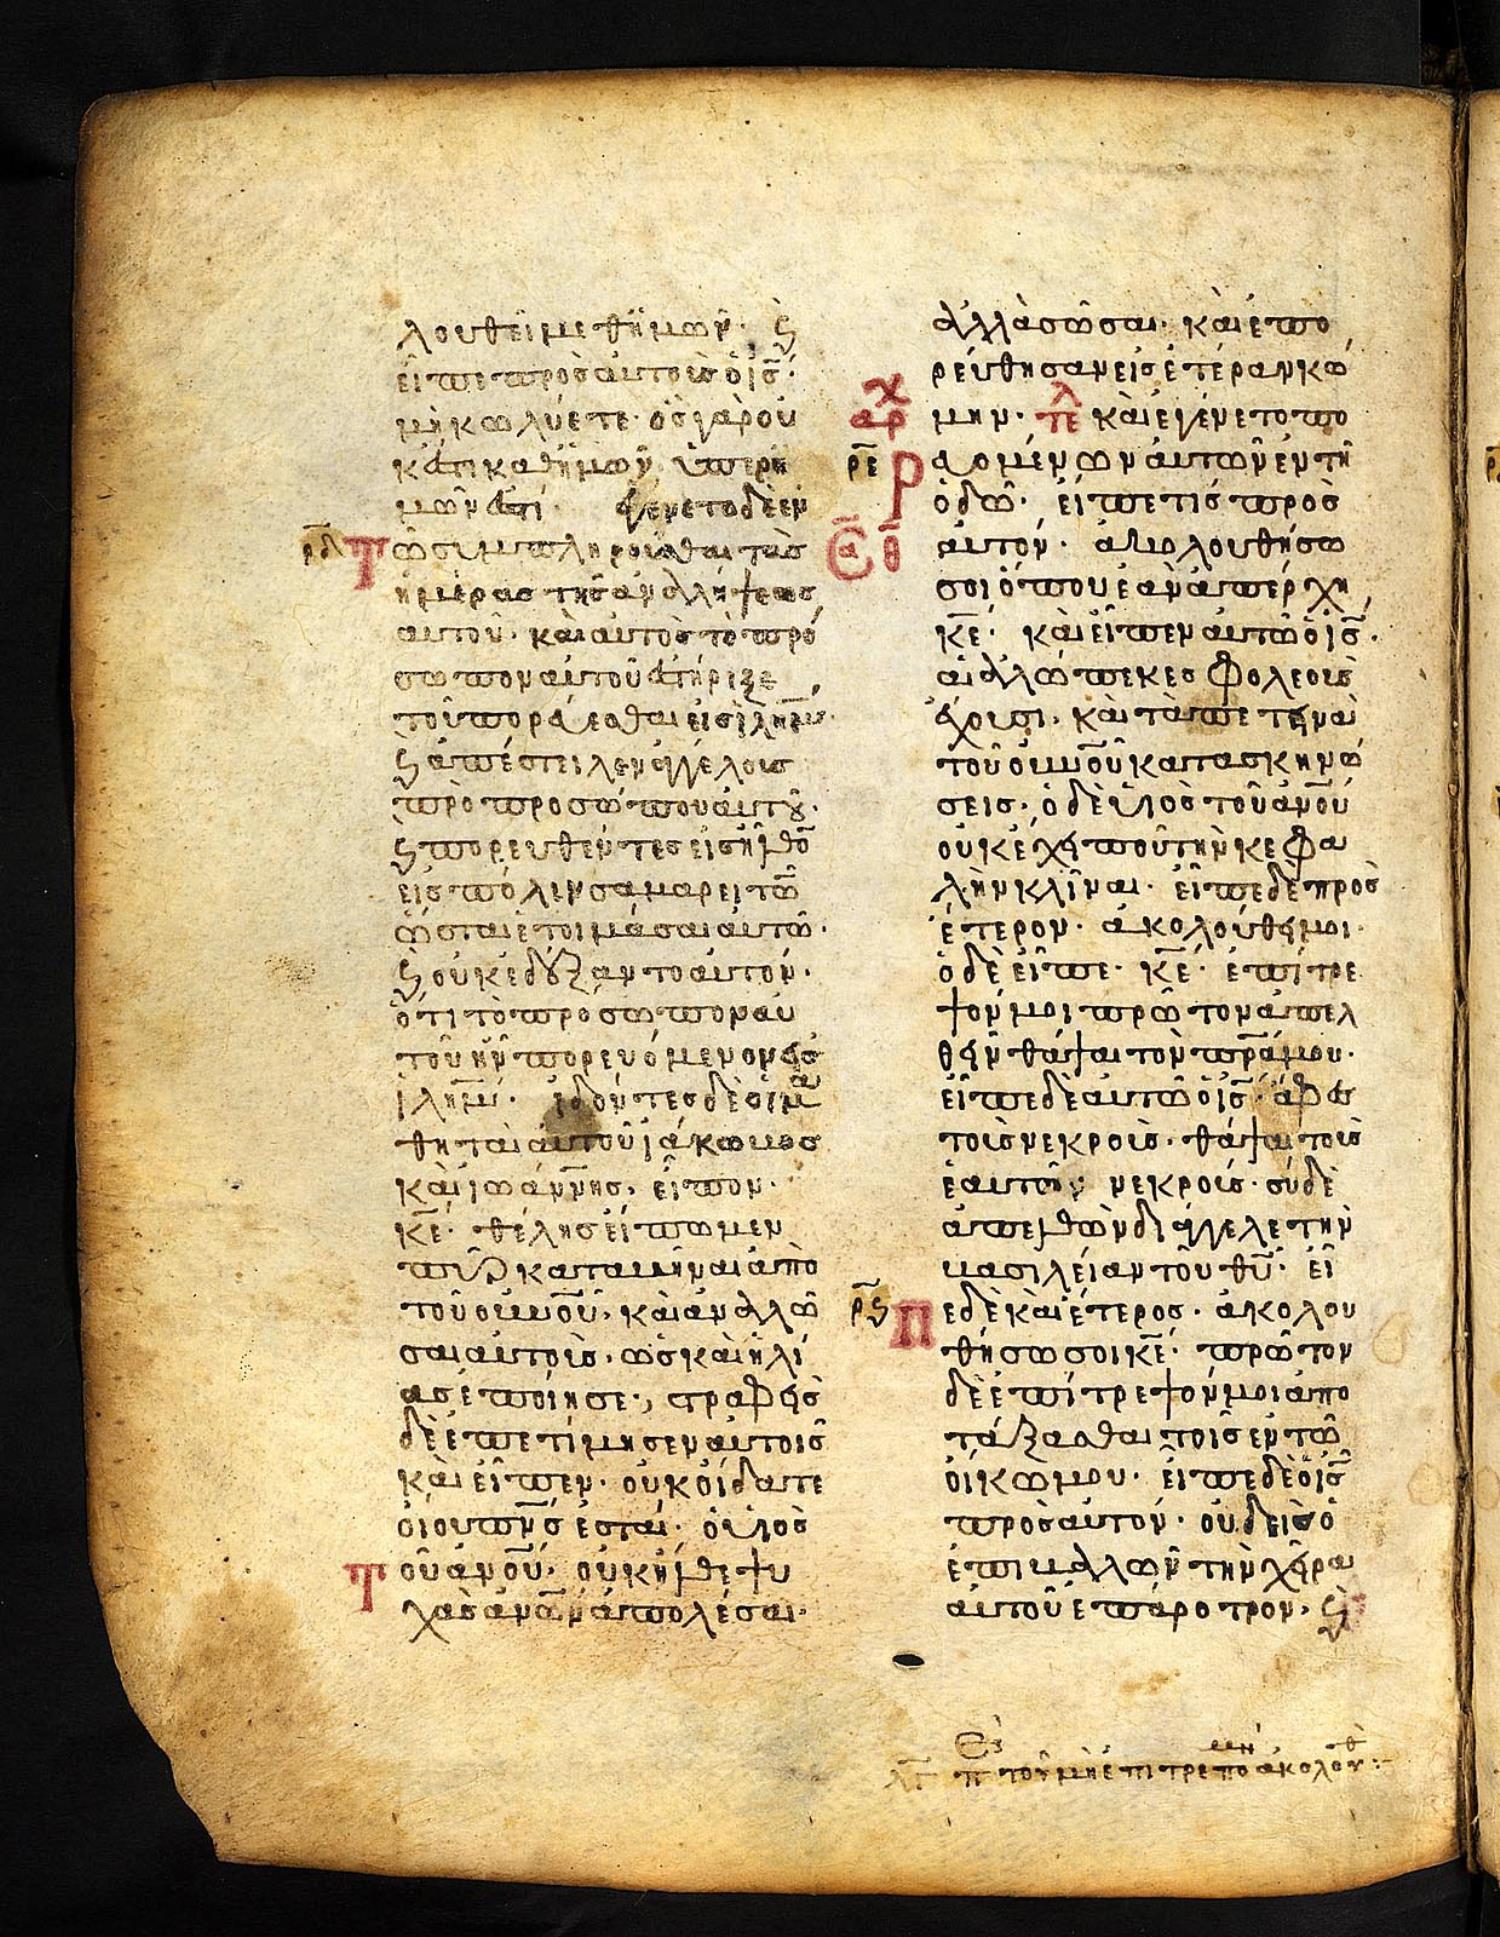 λουθεῖ μεθ ἡμῶν· ϗ
εἶπε πρὸς αὐτοὺς ὁ ις̅·
μὴ κωλύετε· ὃς γὰρ οὐ
κ ἔστι καθ ἡμῶν ὑπὲρ ἡ
μῶν ἐστί· ἐγένετο δὲ ἐν
ρ̅λ̅δ̅ Τῶ συμπληροῦσθαι τὰς
ἡμέρας τῆς ἀναλήψεως
αὐτοῦ· καὶ αὐτὸς τὸ πρό
σωπον αὐτοῦ ἐστήριξε
τοῦ πορεύεσθαι εἰς ἰλη̅μ̅·
ϗ ἀπέστειλεν ἀγγέλους
πρὸ προσώπου αὐτοῦ·
ϗ πορευθέντες εἰσῆλθο̅
εἰς πόλιν σαμαρειτῶ̅
ὥσται ἑτοιμάσαι αὐτῶ·
ϗ οὐκ ἐδέξαντο αὐτόν·
ὅτι τὸ πρόσωπον αὐ
τοῦ ἦν πορευόμενον εἰς
ἰλη̅μ̅· ἰδόντες δὲ οἱ μα
θηταὶ αὐτοῦ ἰάκωβος
καὶ ἰωάννης, εἶπον·
κ̅ε̅· θέλης εἴπωμεν
πῦρ καταβῆναι ἀπὸ
τοῦ ου̅νου̅, καὶ ἀναλῶ
σαι αὐτοὺς· ὡς καὶ ἠλί
ας ἐποίησε·, στραφεὶς
δὲ ἐπετίμησεν αὐτοῖς
καὶ εἶπεν· οὐκ οἴδατε
οἵου πν̅ς̅ ἐσται· ὁ υἱὸς
Τοῦ ἀνο̅υ̅· οὐκ ἦλθε ψυ
χὰς ἀνω̅ν̅ ἀπολέσαι·
ἀλλὰ σῶσαι· καὶ ἐπο
ρεύθησαν εἰς ἑτέραν κώ
αρχ μην· τελ καὶ ἐγένετο πο
ρ̅ε̅ Ρευομένων αὐτῶν ἐν τῆ
ὁδῶ· εἶπε τις πρὸς
αὐτόν· ἀκολουθήσω
σοι ὅπου ἐὰν ἀπέρχη
κ̅ε̅· καὶ εἶπεν αὐτῶ ὁ ις̅·
αἱ ἀλώπεκες φολεοὺς
ἔχουσι· καὶ τὰ πετεινὰ
τοῦ ου̅νου̅ κατασκηνώ
σεις· ὁ δὲ υἱὸς τοῦ ἀνο̅υ̅
οὐκ ἔχει ποῦ τὴν κεφα
λὴν κλῖναι· εἶπε δὲ πρὸς
ἕτερον· ἀκολούθει μοι·
ὁ δὲ εἶπε· κ̅ε̅· ἐπίτρε
ψόν μοι πρῶτον ἀπελ
θεῖν θάψαι τὸν πρ̅α̅ μου·
εἶπε δὲ αὐτῶ ὁ ις̅· ἄφες
τοὺς νεκροὺς· θάψαι τοὺς
ἑαυτῶν νεκρούς· σὺ δὲ
ἀπελθὼν διάγγελε τὴν
βασιλείαν τοῦ θ̅υ̅· εἶ
ρ̅ϛ̅ Πε δὲ καὶ ἕτερος· ἀκολου
θήσω σοι κ̅ε̅· πρῶτον
δὲ ἐπίτρεψόν μοι ἀπο
τάξασθαι τοῖς ἐν τῶ
οἴκω μου· εἶπε δὲ ὁ ις̅
πρὸς αὐτόν· οὐδεὶς ὁ
ἐπιβαλὼν τὴν χεῖρα
αὐτοῦ ἐπ ἄροτρον, ϗ
λ̅γ̅ π τοῦ μὴ ἐπιτρεπο ἀκολου